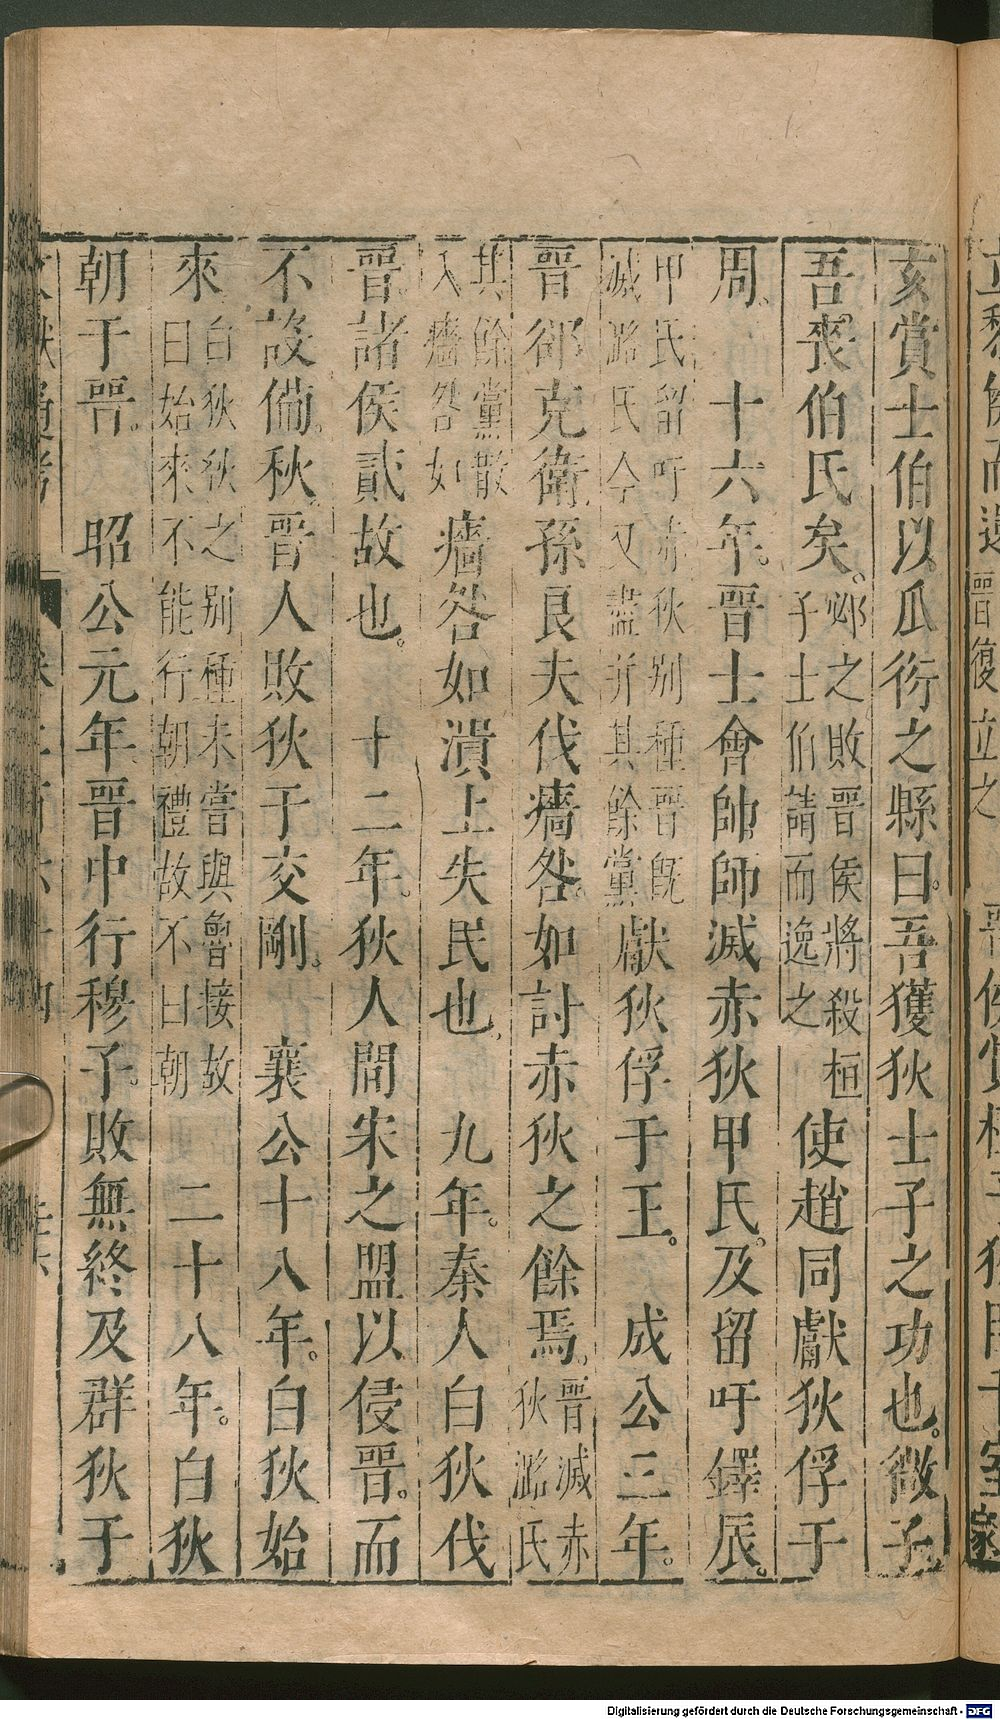 亥賞士伯以瓜衍之縣曰。吾獲狄士子之功也。微子
吾。喪伯氏矣。邲之敗晋侯將殺桓子士伯請而逸之使趙同獻狄俘于
周。十六年。晋士會帥師滅赤狄甲氏。及留吁鐸辰。
甲氏留吁赤狄别種晋既滅潞氏今又盡并其餘黨獻狄俘于王。成公三年。
晋郤克衛孫良夫伐廧咎。如討赤狄之餘焉。晋滅赤狄潞氏
其餘黨散入廧咎如廧咎如潰上失民也。九年。秦人白狄伐
晋。諸侯貳故也。十二年。狄人間宋之盟以侵晋。而
不設備。秋。晋人敗狄于交剛。襄公十八年。白狄始
來白狄狄之别種未嘗與魯接故曰始來不能行朝禮故不曰朝二十八年。白狄
朝于晋。昭公元年晋中行穆子。敗無終及群狄于
晋復立之
室
Digitalisierung gefördert durch die Deutsche Forschungsgemeinschaft - DFG